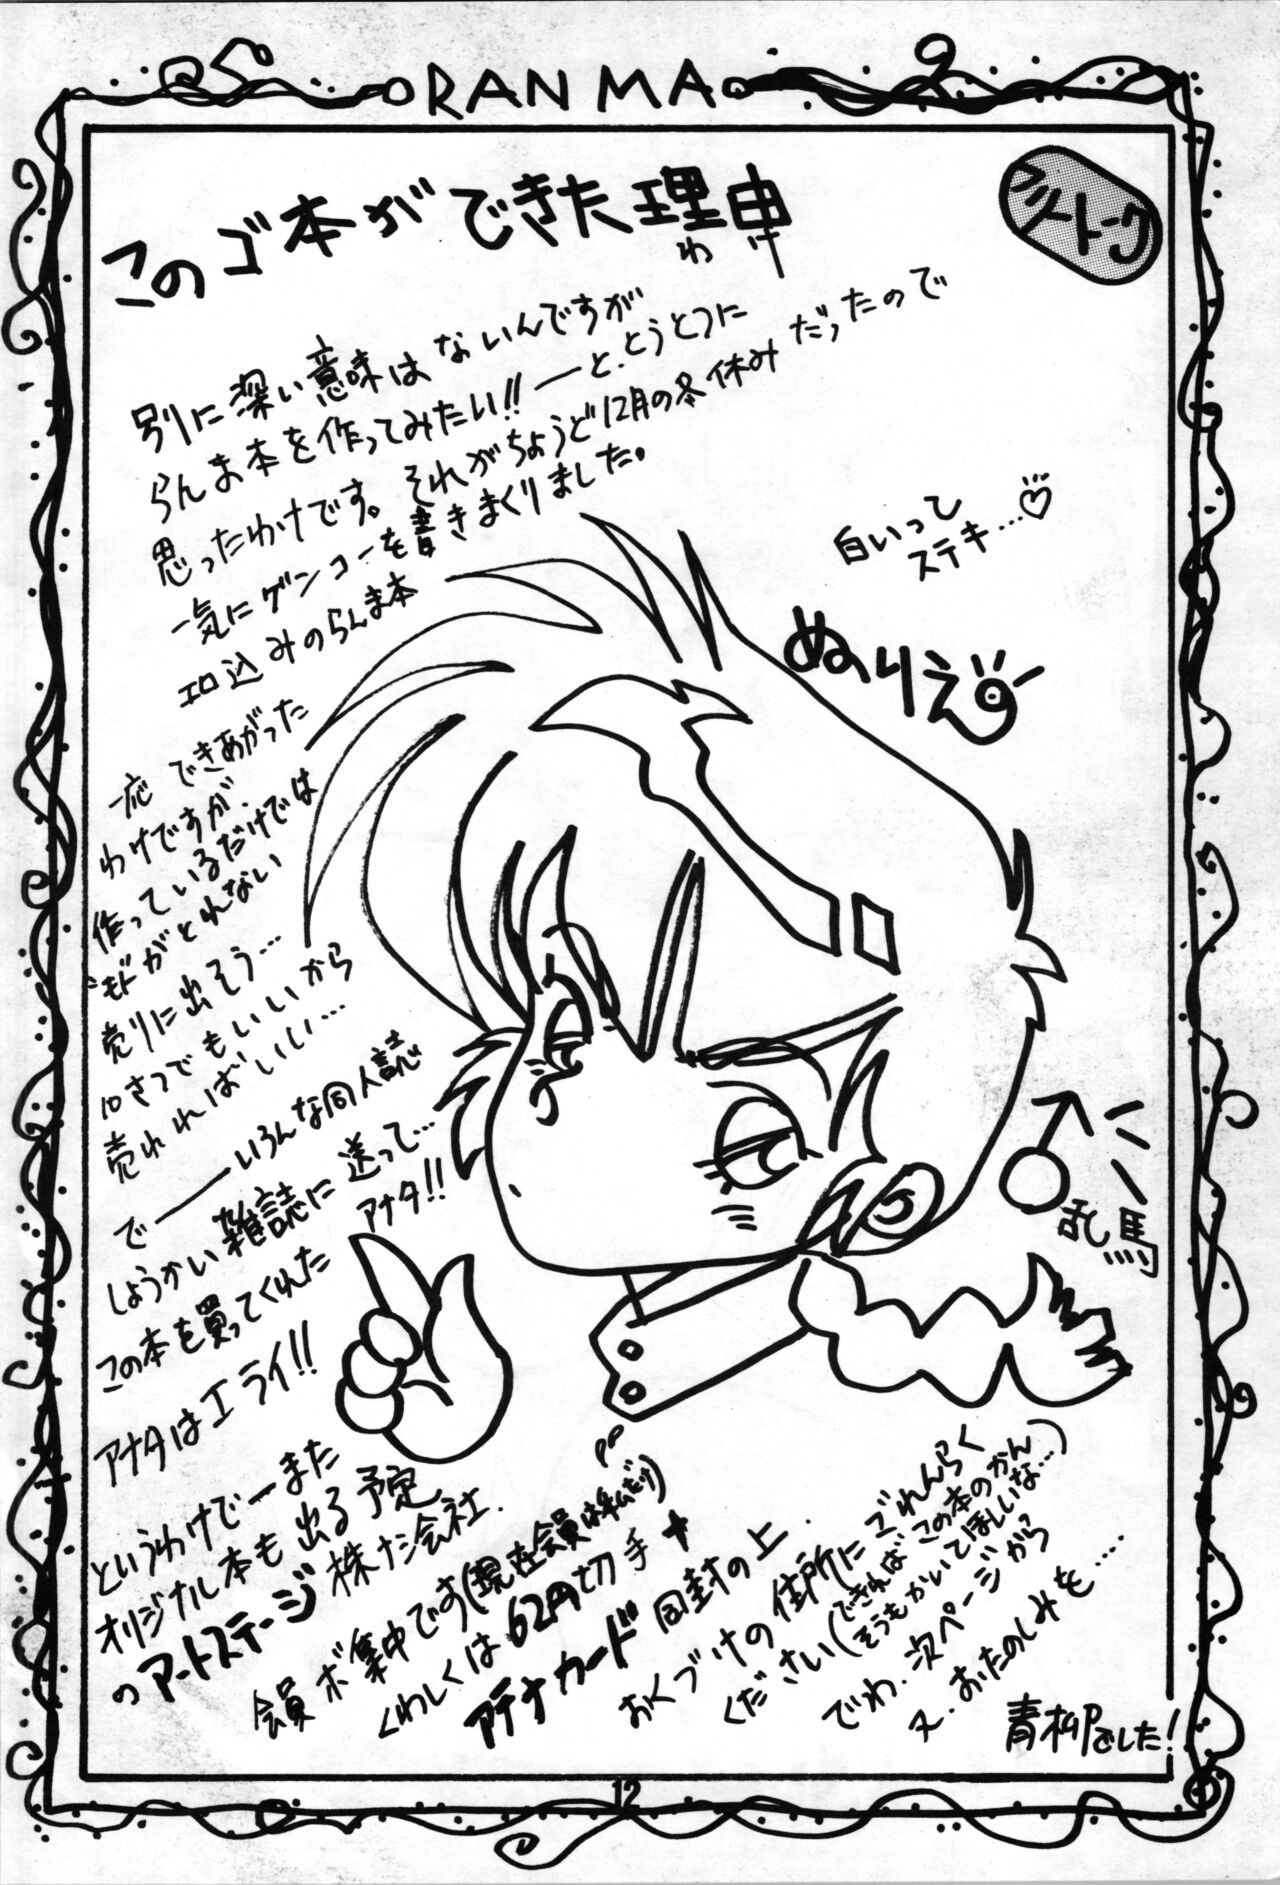 RANMA
フリートーク
このゴ本ができた理由
わけ
別に深い意味はないんですが
らんま本を作ってみたい!!――と、とうとつに
思ったわけです。それがちょうど12月の冬休みだったので
一気にゲンコーを書きまくりました。
エロ込みのらんま本
一応できあがった
わけですが、
作っているだけでは
モトがとれない
売りに出そう…
10さつでもいいから
売れればいい…
で――いろんな同人誌
しょうかい雑誌に送って…
この本を買ってくれた
アナタ!!
アナタはエライ!!
というわけでーまた
オリジナル本も出る予定
のアートステージ株式会社.
会員ボ集中です(現在会員は私だけ)
くわしくは62円切手+
アテナカード同封の上.
おくづけの住所にごれんらく
ください(できればこの本のかん
そうもかいてほしいな…)
でわ.次ページから
おたのしみを……
青柳でした!
白いって
ステキ…♡
ぬりえ
♂
乱馬
12